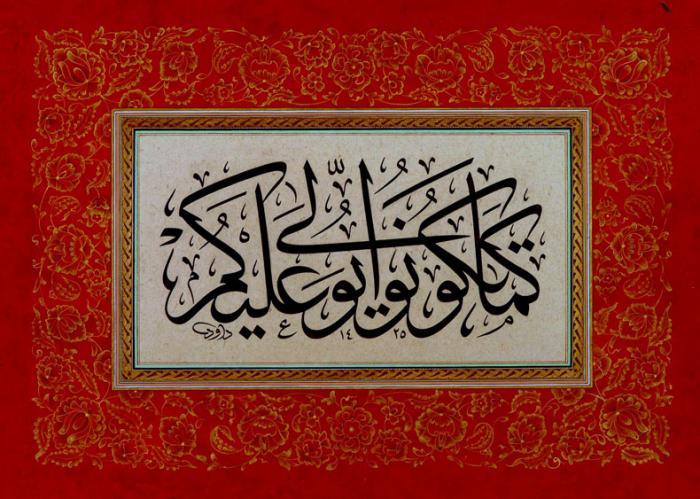 كَمَا تَكُونُوا يُوَلَّى عَلَيْكُمْ
داود ١٤٢٥